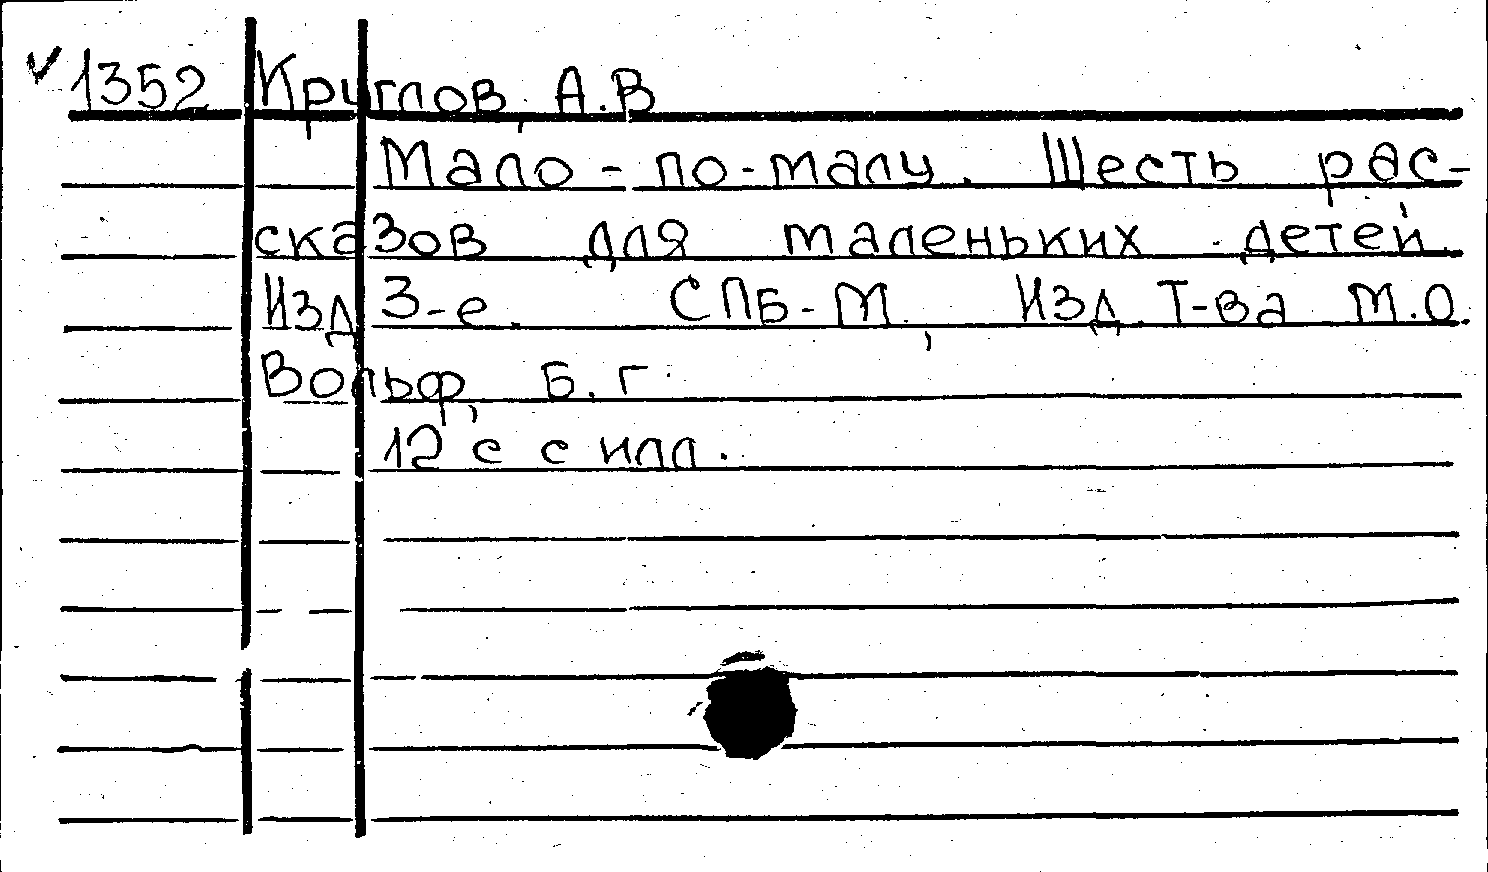 ✓1352 Круглов, А.В
Мало-по-малу. Шесть рас-
сказов для маленьких детей.
Изд 3-е. СПБ-М., Изд. Т-ва М.О.
Вольф, Б.г.
12 с с илл.